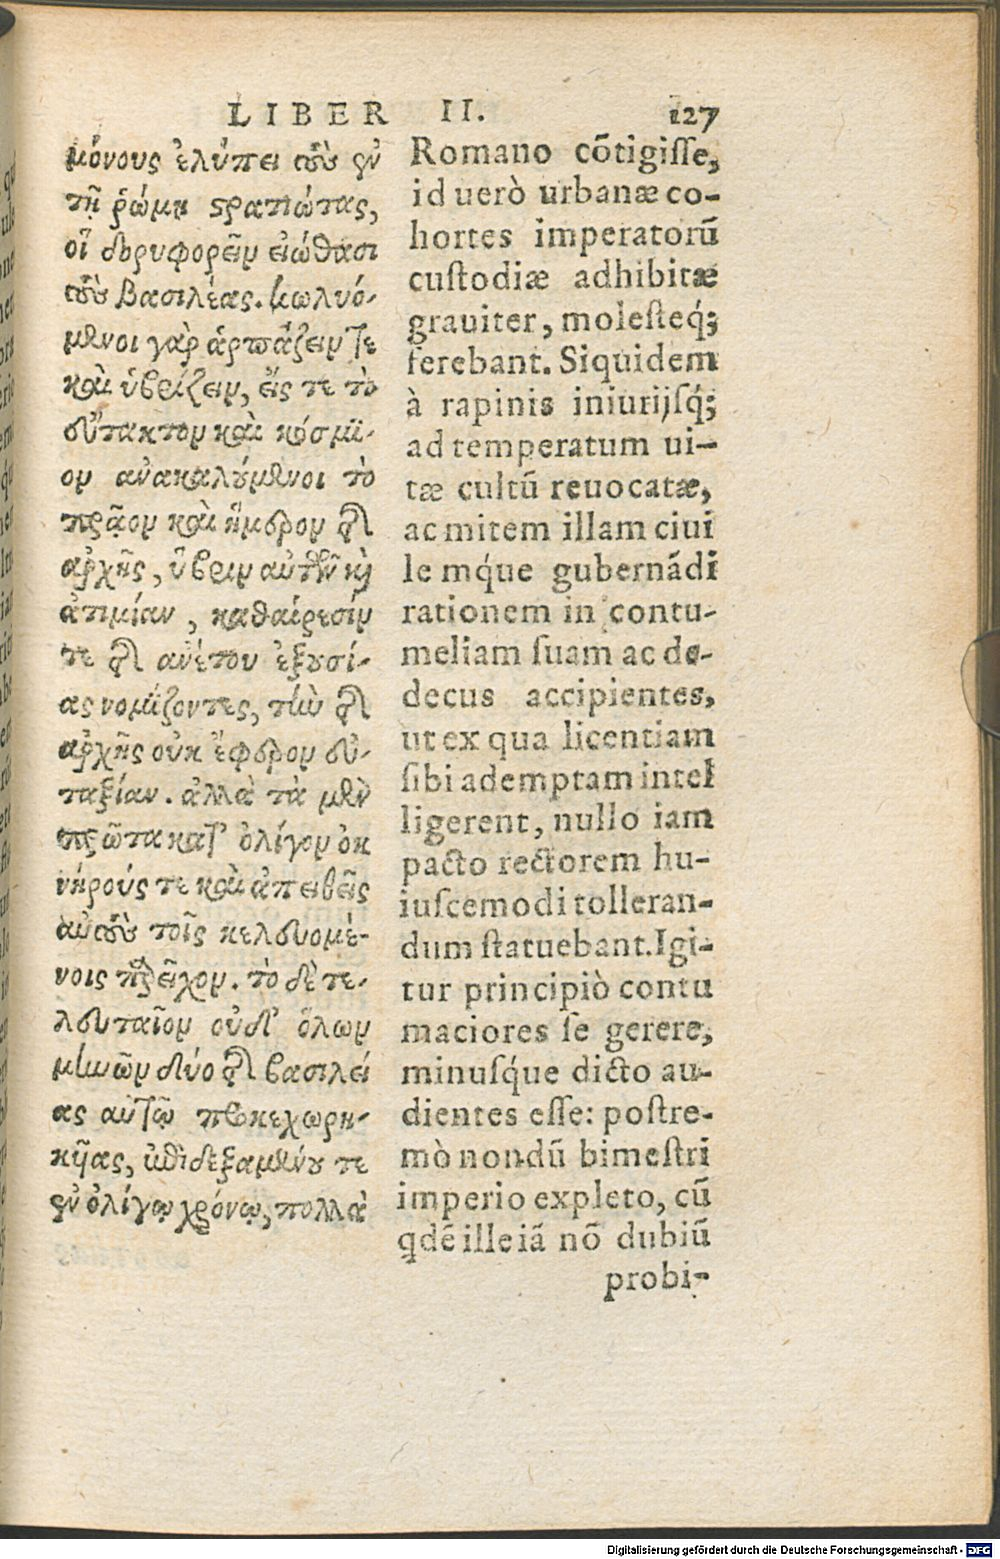 LIBER II. 127
μόνους ἐλύπει τοὺς ἐν
τῇ ῥώμῃ στρατιώτας,
οἳ δορυφορεῖν εἰώθασι
τοὺς βασιλέας. κωλυό-
μενοι γὰρ ἁρπάζειν τε
καὶ ὑβρίζειν, εἴς τε τὸ
εὔτακτον καὶ κόσμι-
ον ἀνακαλούμενοι τὸ
πρᾷον καὶ ἥμερον τῆς
ἀρχῆς, ὕβριν αὐτῶν καὶ
ἀτιμίαν, καθαίρεσίν
τε τῆς ἀνέτου ἐξουσί-
ας νομίζοντες, τὴν τῆς
ἀρχῆς οὐκ ἔφερον εὐ-
ταξίαν. ἀλλὰ τὰ μὲν
πρῶτα κατ' ὀλίγον ὀκ
νηρούς τε καὶ ἀπειθεῖς
αὑτοὺς τοῖς κελευομέ-
νοις παρεῖχον. τὸ δὲ τε-
λευταῖον οὐδ' ὅλων
μηνῶν δύο τῆς βασιλεί
ας αὐτῷ προκεχωρη-
κυίας, ἐπιδειξαμένου τε
ἐν ὀλίγῳ χρόνῳ, πολλὰ
Romano cōtigisse,
id uerò urbanæ co-
hortes imperatorū
custodiæ adhibitæ
grauiter, molesteq́;
ferebant. Siquidem
à rapinis iniurijsq́;
ad temperatum ui-
tæ cultū reuocatæ,
ac mitem illam ciui
lemq́ue gubernādi
rationem in contu-
meliam suam ac de-
decus accipientes,
ut ex qua licentiam
sibi ademptam intel
ligerent, nullo iam
pacto rectorem hu-
iuscemodi tolleran-
dum statuebant. Igi-
tur principiò contu
maciores se gerere,
minusq́ue dicto au-
dientes esse: postre-
mò nondū bimestri
imperio expleto, cū
qdē ille iā nō dubiū
probi-
Digitalisierung gefördert durch die Deutsche Forschungsgemeinschaft - DFG